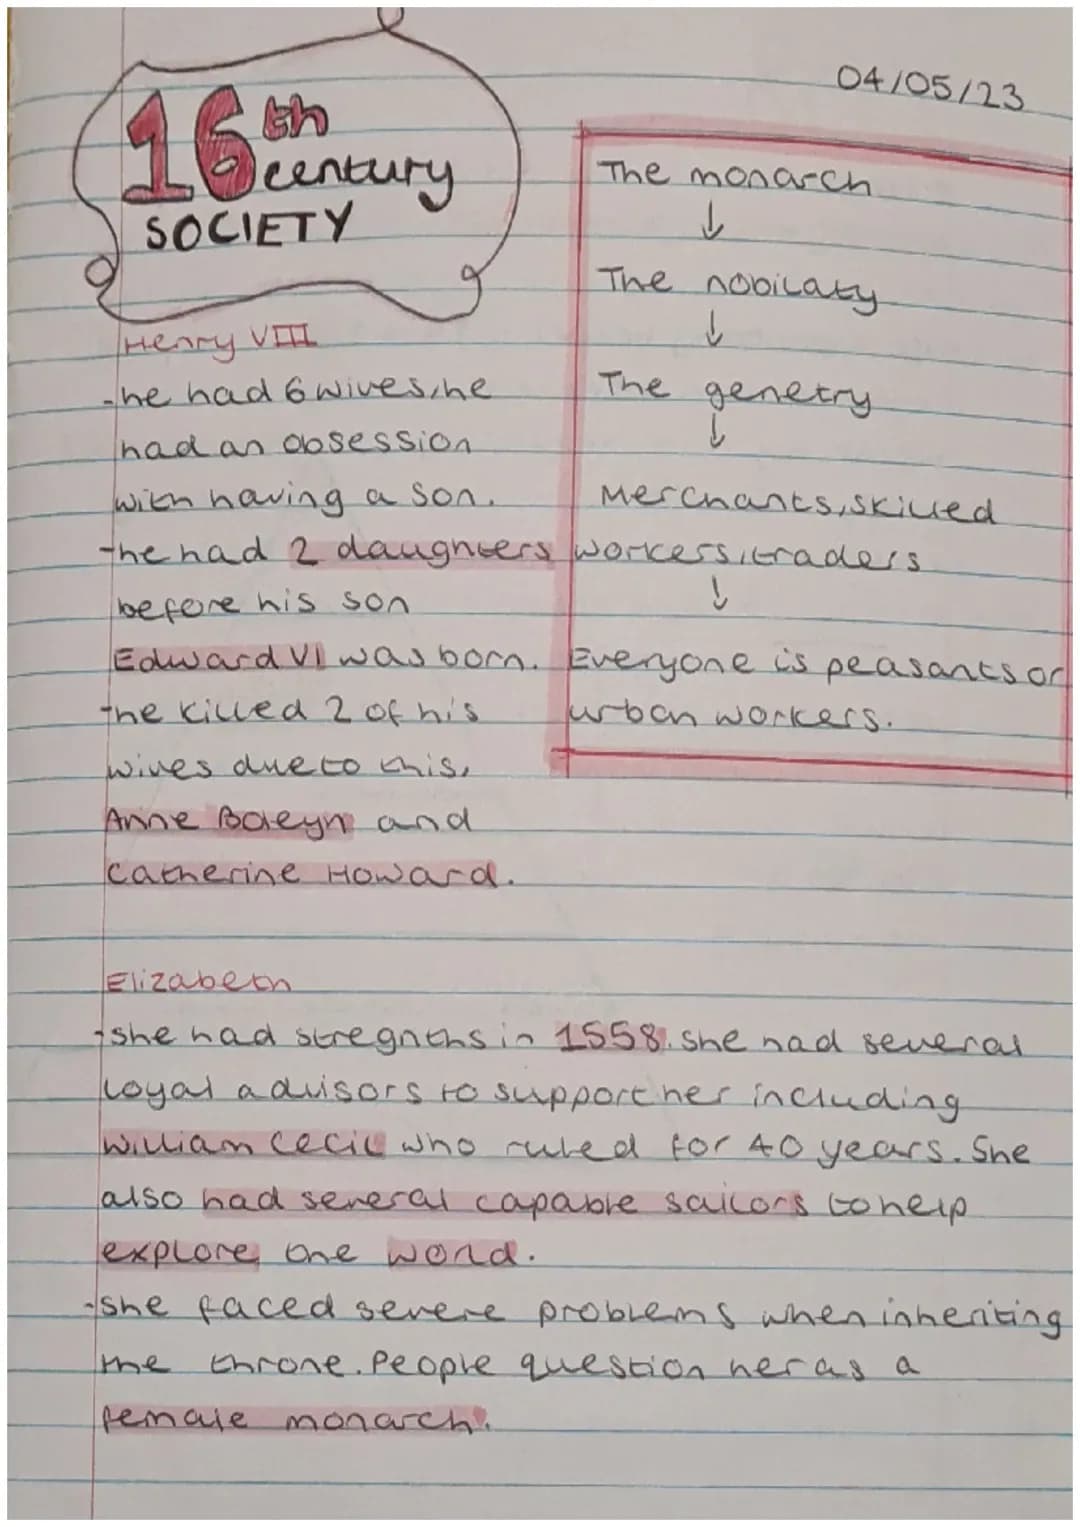 16th
century
SOCIETY
04/05/23
The monarch
↓
The nobilaty
↓
The genetry
↓
Merchants, skilled
workers, traders
↓
Everyone is peasants or
urban workers.
Henry VIII
-he had 6 wives, he
had an obsession
with having a son.
-he had 2 daughters
before his son
Edward VI was born.
-he killed 2 of his
wives due to this,
Anne Boleyn and
Catherine Howard.
Elizabeth
-she had stregnths in 1558. She had several
loyal advisors to support her including
William Cecil who ruled for 40 years. She
also had several capable sailors to help
explore the world.
-she faced severe problems when inheriting
the throne. People question her as a
female monarch.